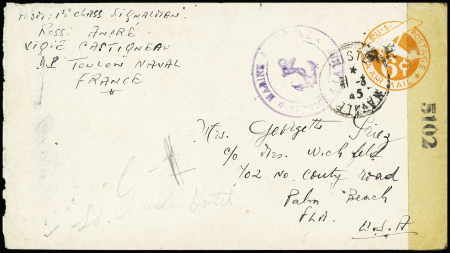 1st class Signalman
Rossi André
Vigie Castigneau
B.P Toulon Naval
France
MARINE
POSTE NAVALE
45
U.S. POSTAGE
6¢
AIR MAIL
5102
Mrs. Georgette
c/o Mrs. Wichfeld
702 No. County road
Palm Beach
FLA.
U.S.A
Hotel